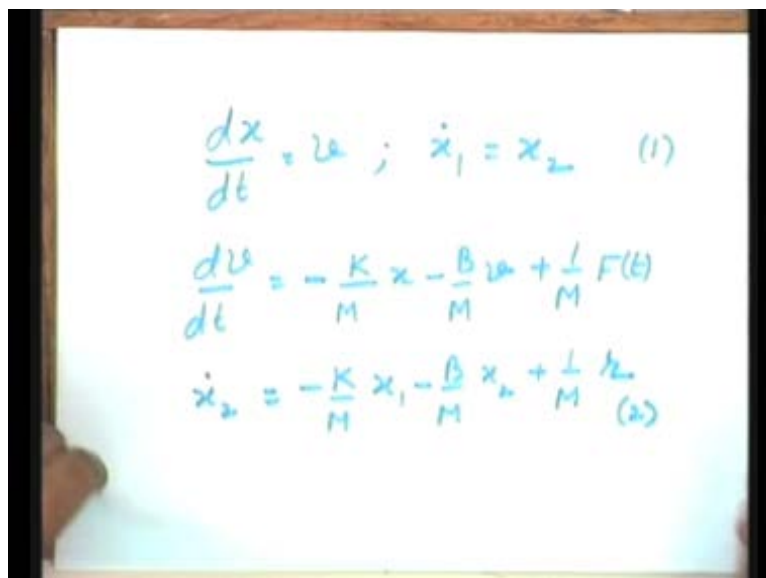 dx/dt = v ; ẋ₁ = x₂ (1)
dv/dt = - K/M x - B/M v + 1/M F(t)
ẋ₂ = - K/M x₁ - B/M x₂ + 1/M r
(2)